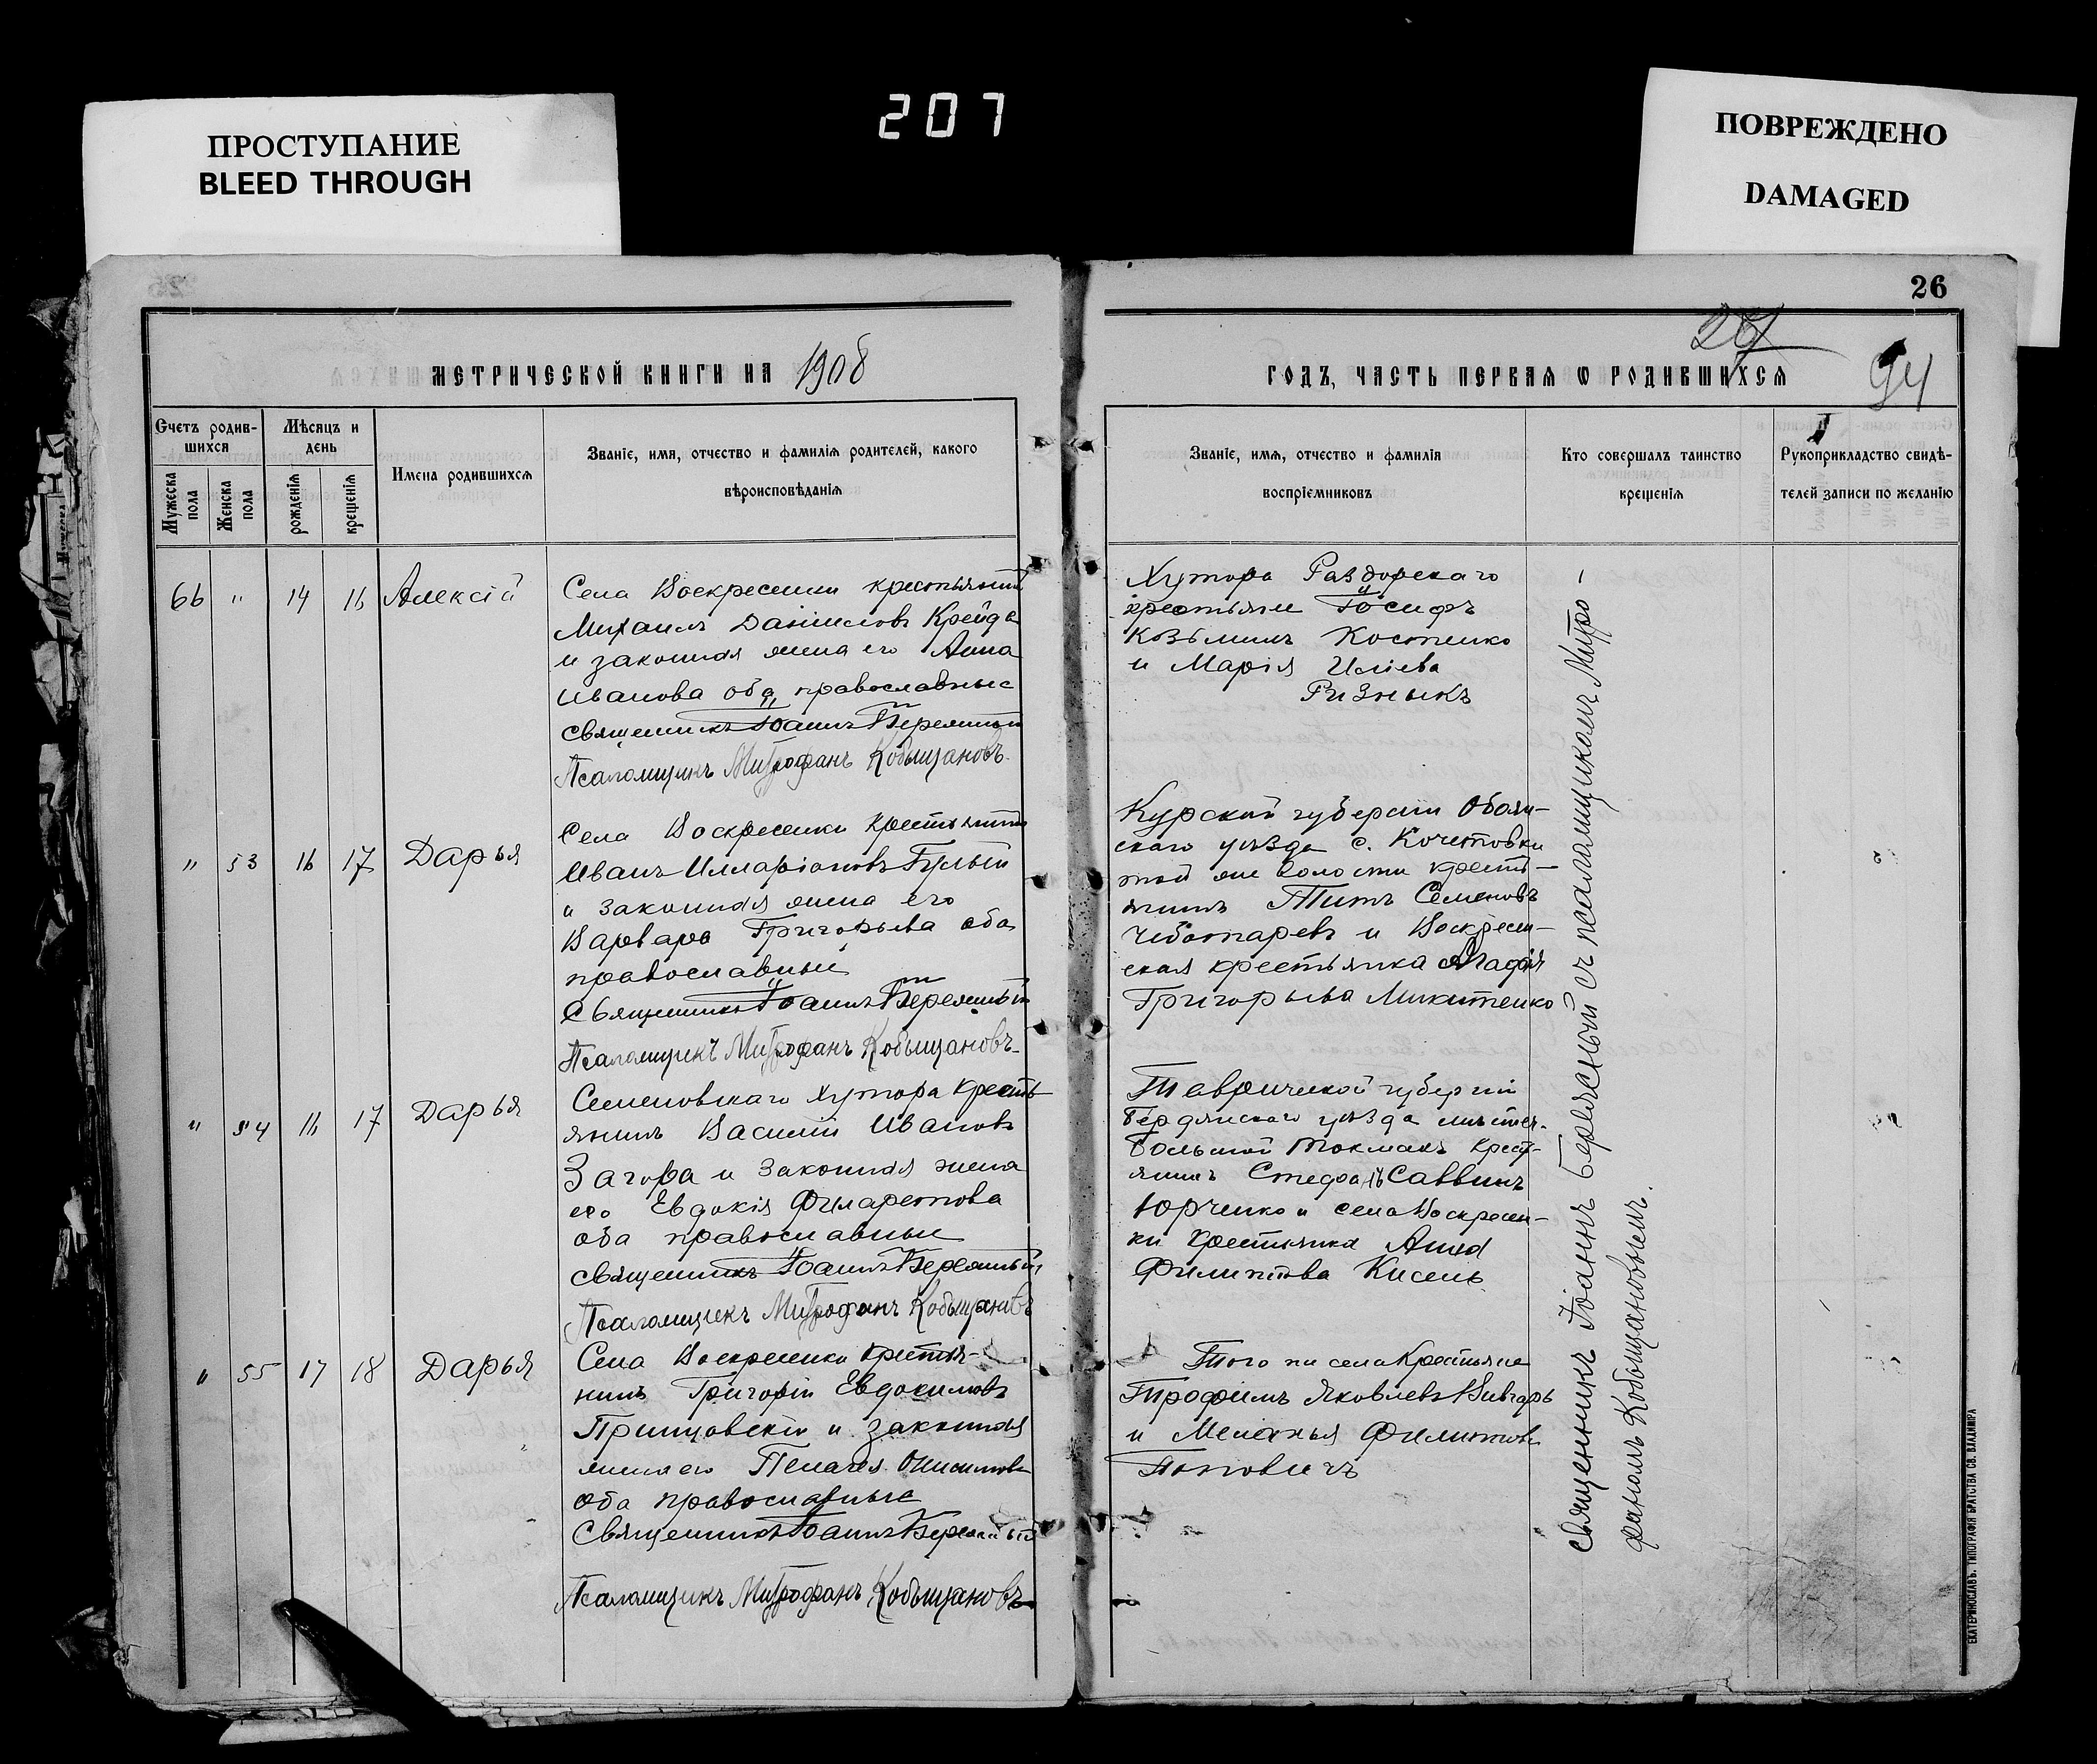 207
ПРОСТУПАНИЕ
BLEED THROUGH
ПОВРЕЖДЕНО
DAMAGED
26
94
МЕТРИЧЕСКОЙ КНИГИ НА 1908
ГОДЪ, ЧАСТЬ ПЕРВАЯ Ѡ РОДИВШИХСЯ
Счетъ родив-
шихся
Мужеска пола
Женска пола
Мѣсяцъ и
день
рожденія
крещенія
Имена родившихся
Званіе, имя, отчество и фамилія родителей, какого
вѣроисповѣданія
Званіе, имя, отчество и фамилія
воспріемниковъ
Кто совершалъ таинство
крещенія
Рукоприкладство свидѣ-
телей записи по желанію
66 " 14 16 Алексій
Села Воскресенки крестьянинъ
Михаилъ Даніиловъ Крейда
и законная жена его Анна
Иванова оба православные
Священникъ Іоаннъ Бережный
Псаломщикъ Митрофанъ Кобыщановъ
Хутора Раздорскаго
крестьяне Іосифъ
Козьминъ Костенко
и Марія Иліева
Ризныкъ
" 53 16 17 Дарья
Села Воскресенки крестьянинъ
Иванъ Илларіоновъ Гулый
и законная жена его
Варвара Григорьева оба
православные
Священникъ Іоаннъ Бережный
Псаломщикъ Митрофанъ Кобыщановъ
Курской губерніи Обоян-
скаго уѣзда с. Кочетовки
той же волости кресть-
янинъ Титъ Семеновъ
Чеботаревъ и Воскресен-
ская крестьянка Агафія
Григорьева Микитенко
" 54 16 17 Дарья
Семеновскаго хутора кресть-
янинъ Василій Ивановъ
Загора и законная жена
его Евдокія Филаретова
оба православные
Священникъ Іоаннъ Бережный
Псаломщикъ Митрофанъ Кобыщановъ
Таврической губерніи
Бердянскаго уѣзда мѣстеч.
Большой Токмакъ крест-
янинъ Стефанъ Саввинъ
Юрченко и села Воскресен-
ки крестьянка Анна
Филиппова Кисель
" 55 17 18 Дарья
Села Воскресенки крестья-
нинъ Григорій Евдокимовъ
и законная
жена его Пелагея Онисимова
оба православные
Священникъ Іоаннъ Бережный
Псаломщикъ Митрофанъ Кобыщановъ
Того же села крестьяне
Трофимъ Яковлевъ Вивчарь
и Меланья Филиппова
Поповичъ
Священникъ Іоаннъ Бережный съ псаломщикомъ Митро-
фаномъ Кобыщановымъ.
ЕКАТЕРИНОСЛАВЪ. ТИПОГРАФІЯ БРАТСТВА СВ. ВЛАДИМІРА